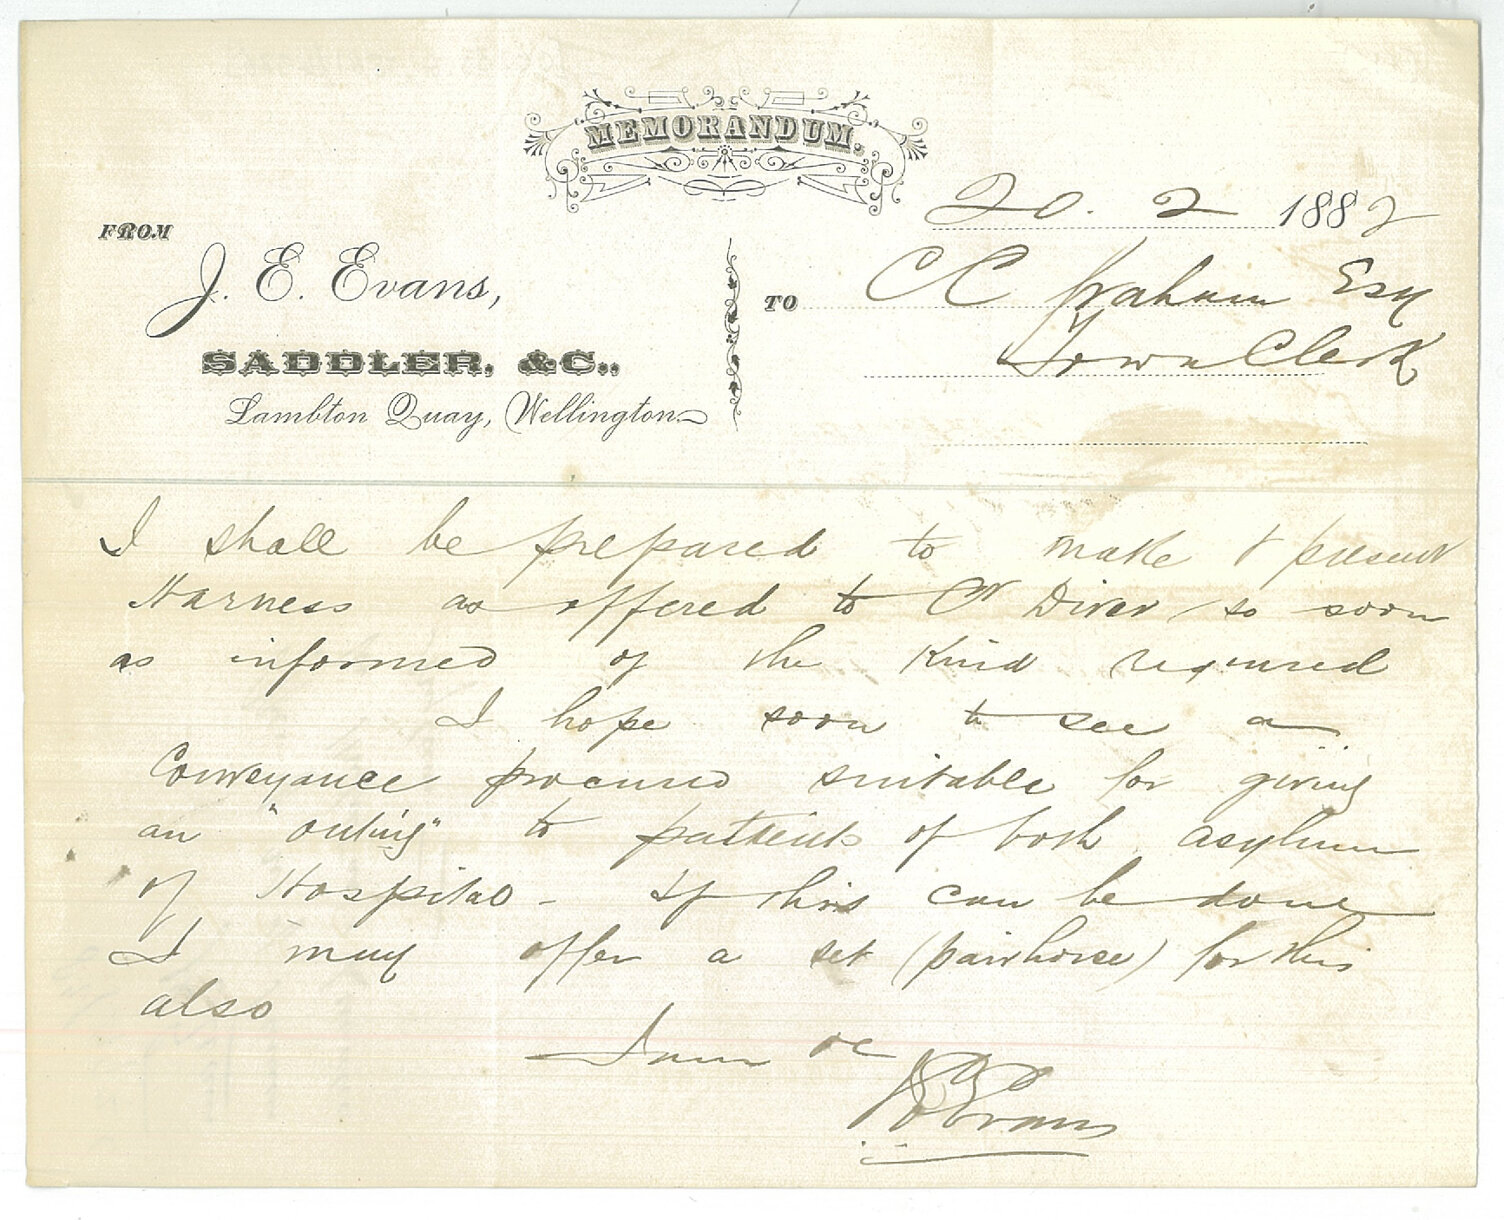 MEMORANDUM.
20. 2 1882
FROM
J. E. Evans,
SADDLER, &C.,
Lambton Quay, Wellington
TO C C Graham Esq
Town Clerk
I shall be prepared to make & present
Harness as offered to Cr Diver so soon
as informed of the kind required
I hope soon to see a
Conveyance procured suitable for giving
an "outing" to patients of both asylum
of Hospital - If this can be done
I may offer a set (pair horse) for this
also
I am &c
J E Evans